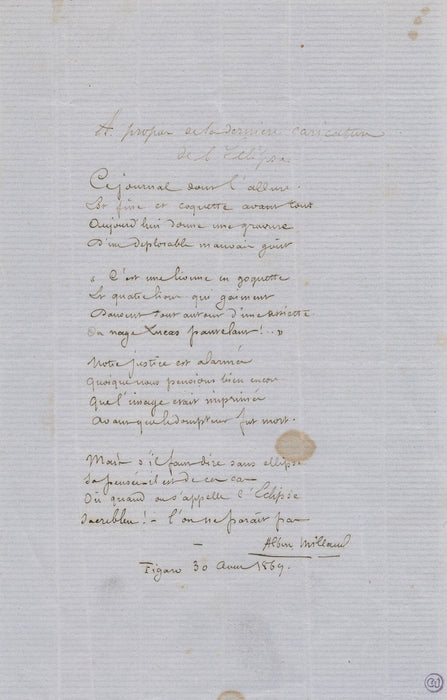 A propos de la dernière caricature
de l'Eclipse
Ce journal dont l'allure
Est fine et coquette avant tout
Aujourd'hui donne une gravure
D'un deplorable mauvais goût
« C'est une lionne en goguette
Et quatre lions qui gaiement
Dansent tout autour d'une assiette
Où nage Lucas pantelant!.. »
Notre justice est alarmée
Quoique nous pensions bien encor
Que l'image etait imprimée
Avant que le dompteur fut mort.
Mais s'il faut dire sans ellipse
Sa pensée il est de ces cas
Où quand on s'appelle l'Eclipse
Sacrebleu! - l'on ne parait pas
Albert Millaud
Figaro 30 Aout 1869.